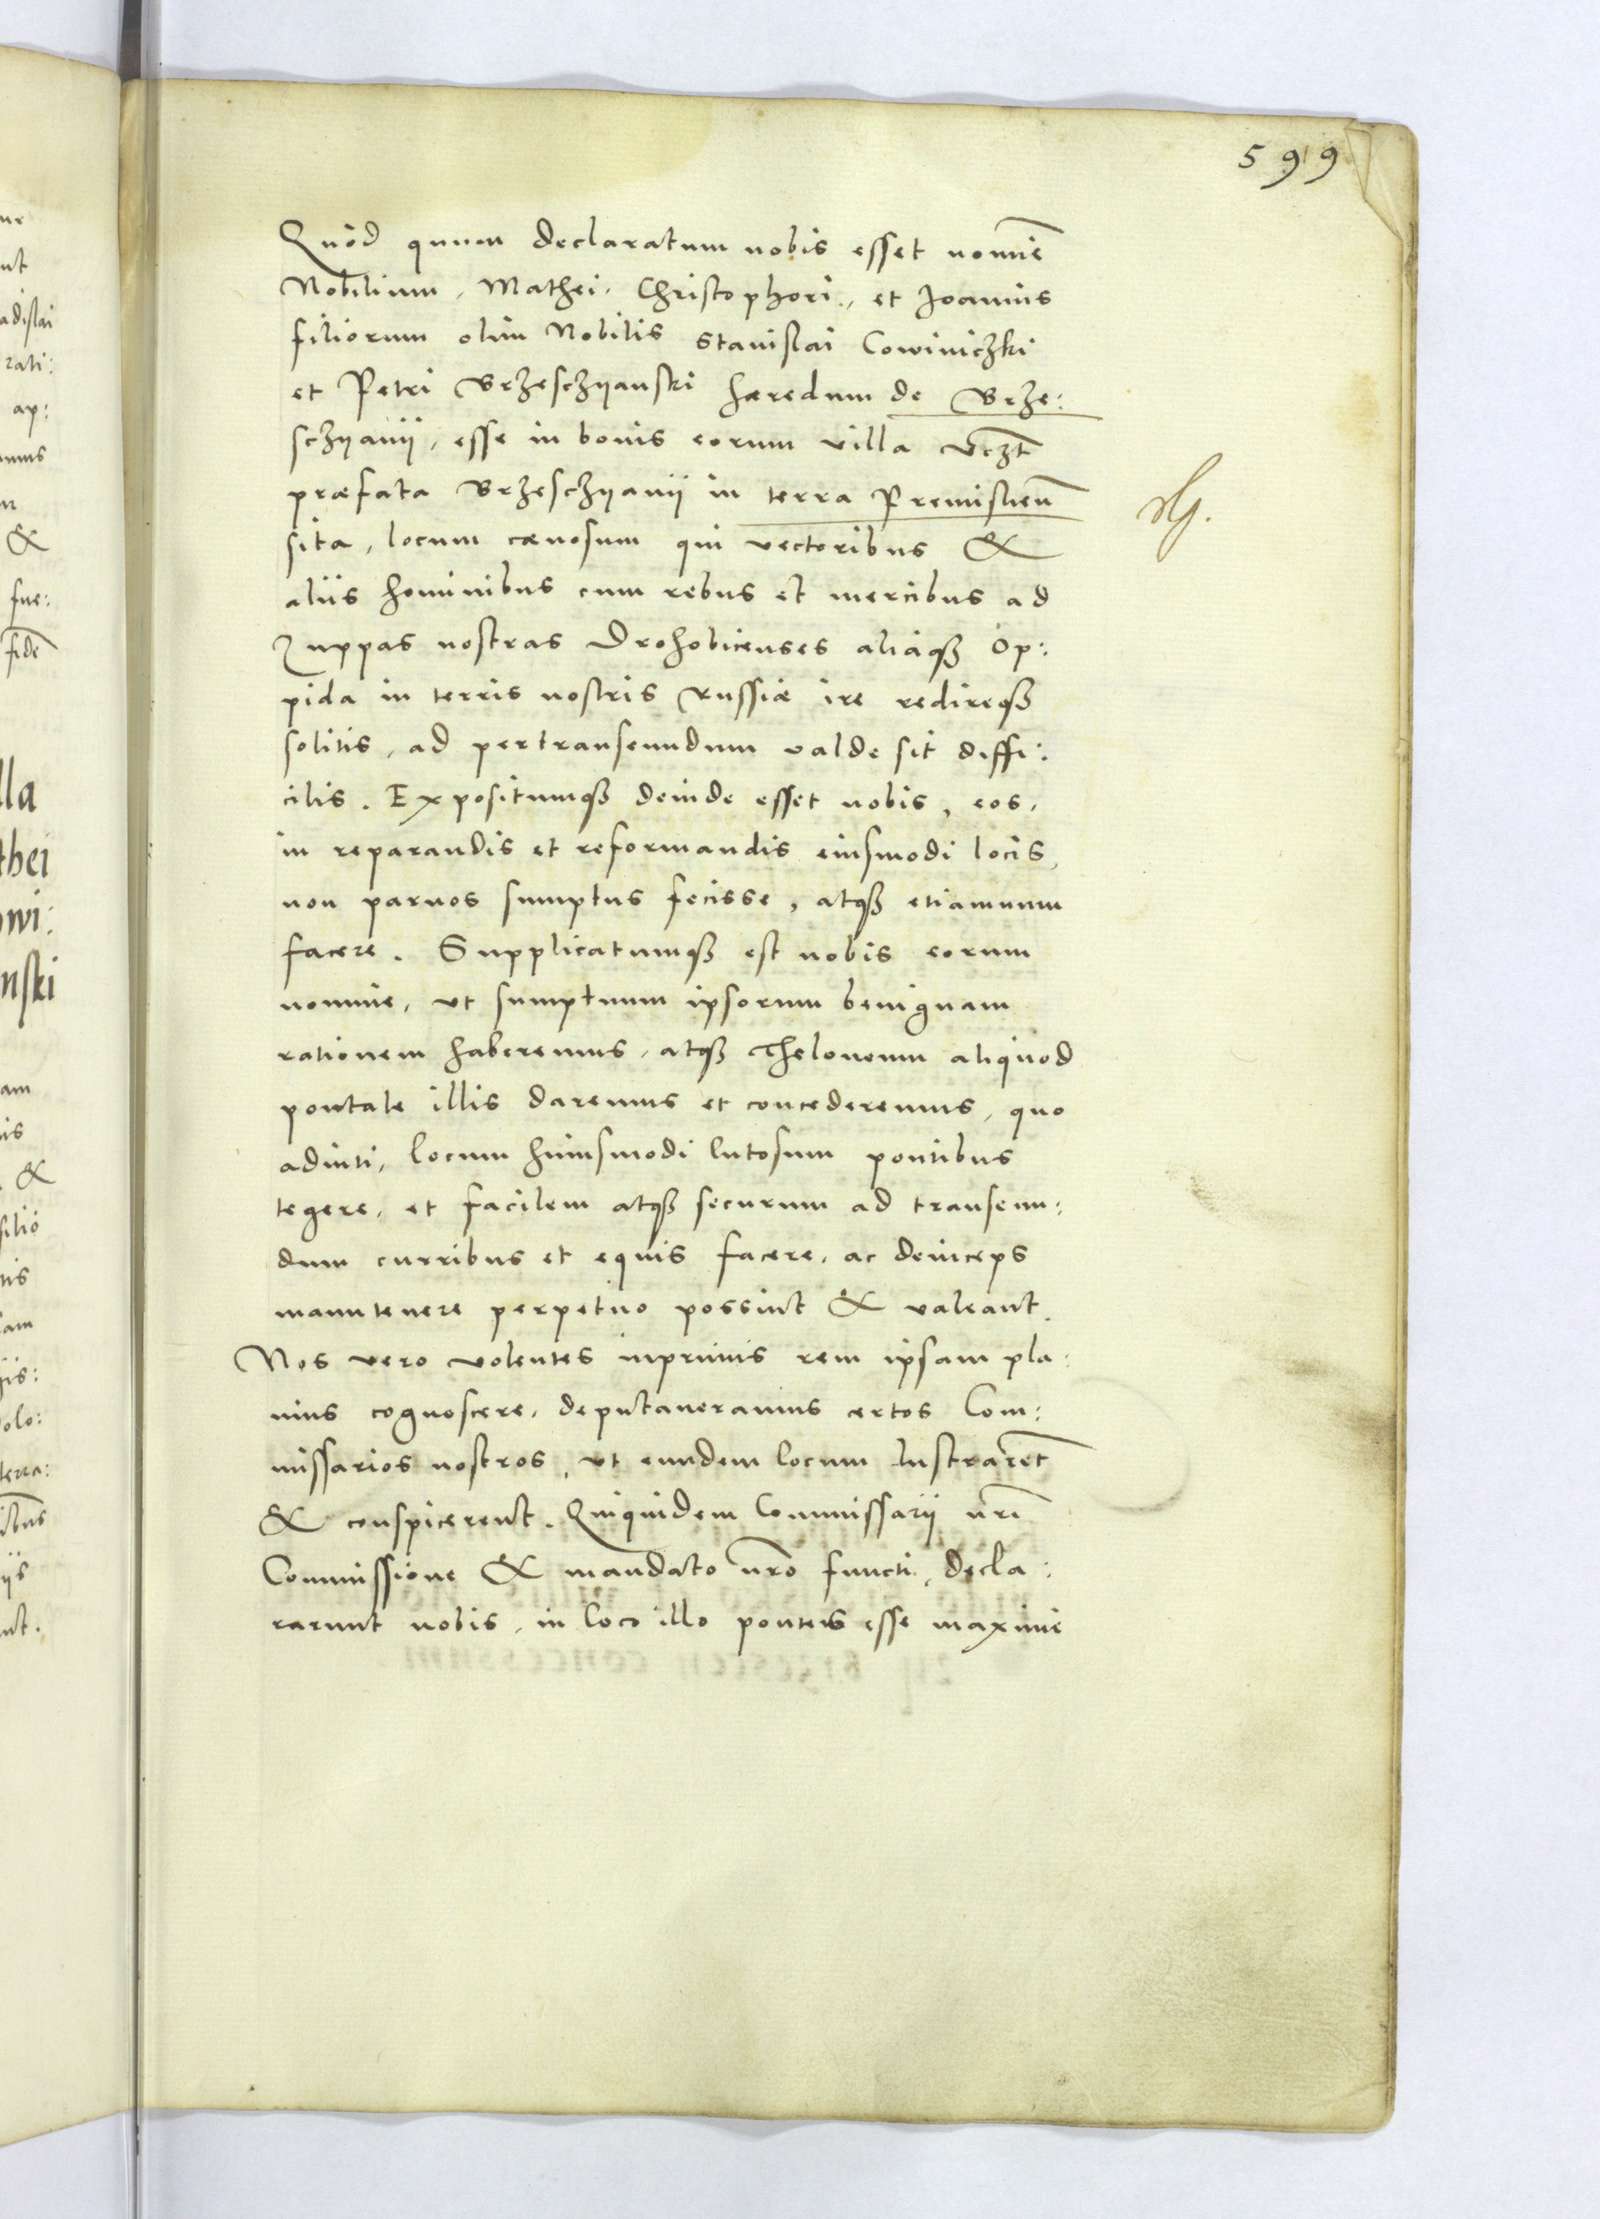 599
Quòd quum declaratum nobis esset nomīe
Nobilium, Mathei, Christophori, et Joannis
filiorum olim Nobilis Stanislai Cowiniczki
et Petri Brzesczyanski hæredum de Brze:
sczyanij, esse in bonis eorum villa vczt̄
præfata Brzesczyanij in terra Premislień
sita, locum cænosum qui vectoribus &
aliis hominibus cum rebus et mercibus ad
Zuppas nostras Drohobicenses aliaqȝ Op:
pida in terris nostris Russiæ ire redireqȝ
solitis, ad pertranseundum valde sit diffi:
cilis. Expositumqȝ deinde esset nobis, eos,
in reparandis et reformandis eiusmodi locis,
non paruos sumptus fecisse, atqȝ etiamnum
facere. Supplicatumqȝ est nobis eorum
nomine, ut sumptuum ipsorum benignam
rationem haberemus, atqȝ Theloneum aliquod
pontale illis daremus et concederemus, quo
adiuti, locum huiusmodi lutosum pontibus
tegere, et facilem atqȝ securum ad transeun:
dum curribus et equis facere, ac deinceps
manutenere perpetuo possint & valeant.
Nos vero volentes inprimis rem ipsam pla:
nius cognoscere, deputaueramus certos Com:
missarios nostros, ut eundem locum lustrarēt
& conspicerent. Quiquidem Commissarij nr̄i
Commissione & mandato nr̄o functi, decla:
rarunt nobis, in loco illo pontes esse maxime